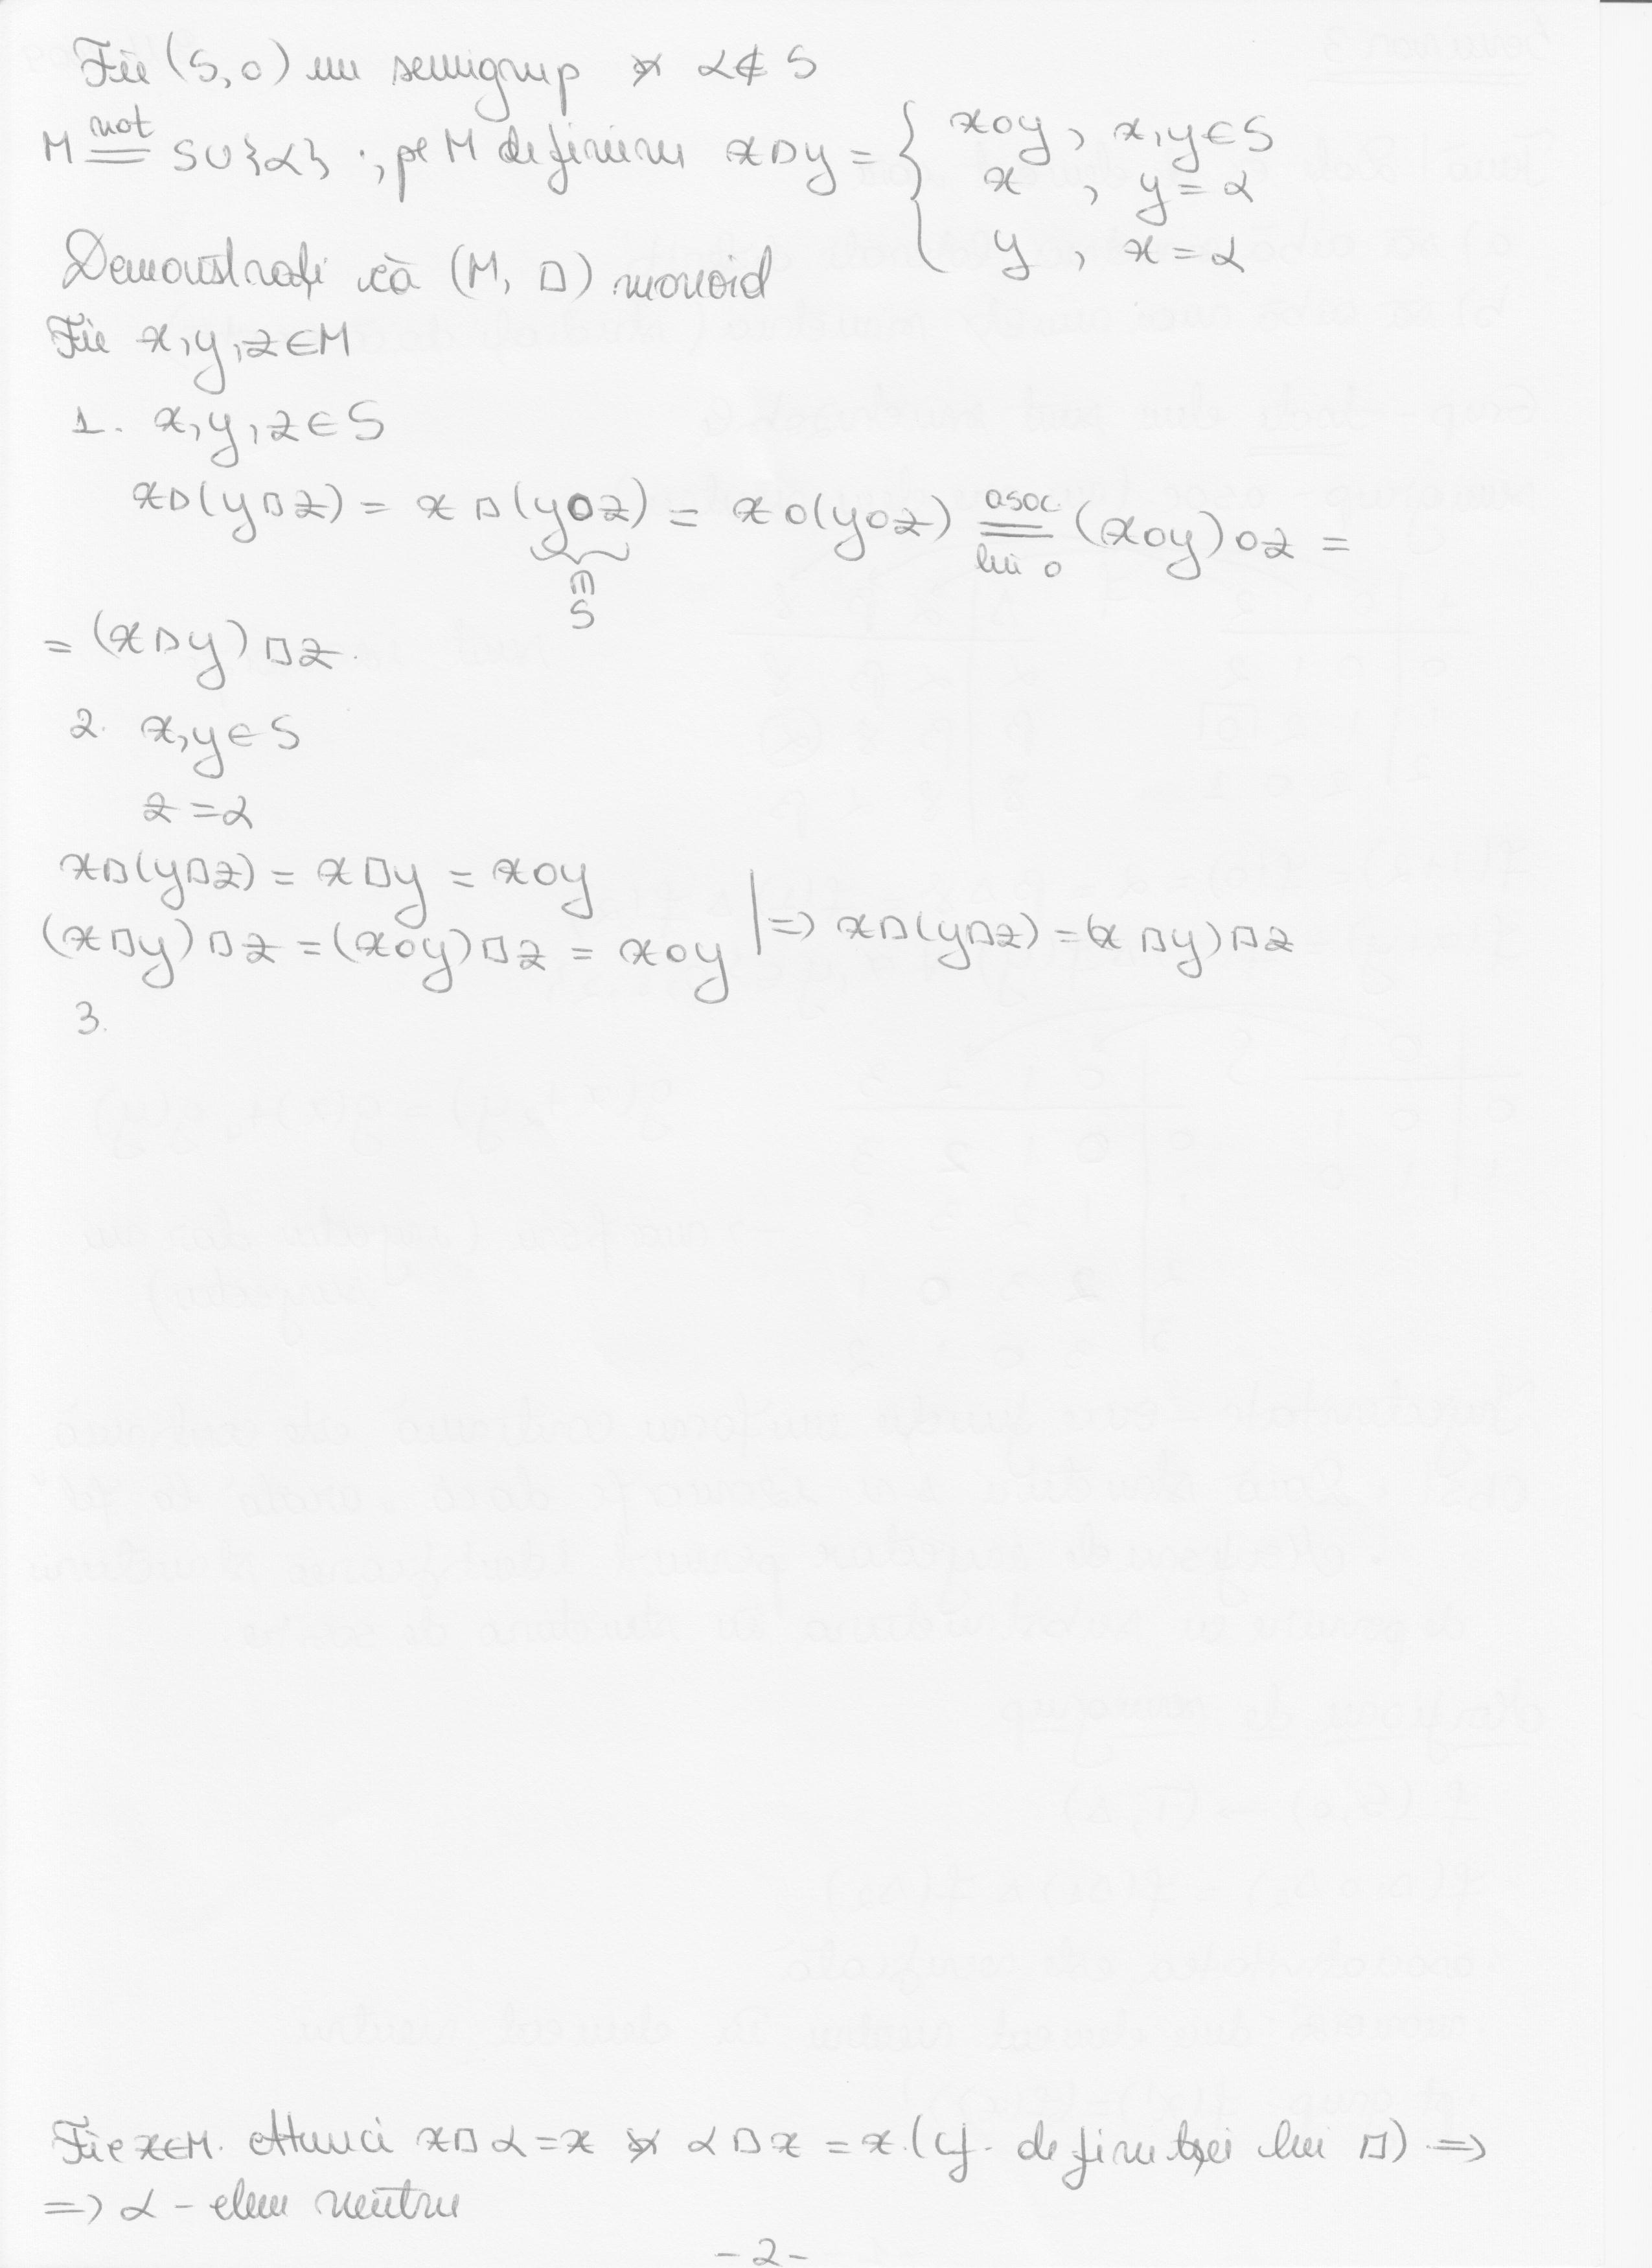 Fie (S, o) un semigrup și α ∉ S
M not= S∪{α} ; pe M definim x □ y = { xoy , x,y ∈ S
x , y = α
y , x = α
Demonstrați că (M, □) monoid
Fie x,y,z ∈ M
1. x,y,z ∈ S
x□(y□z) = x □ (yoz) = x o(yoz) asoc. = lui o (xoy)oz =
∈ S
= (x□y)□z.
2. x,y ∈ S
z = α
x□(y□z) = x□y = xoy
(x□y)□z = (xoy)□z = xoy | => x□(y□z) = (x □y)□z
3.
Fie x∈M. Atunci x□α = x și α□x = x. (cf. definiției lui □) =>
=> α - elem neutru
- 2 -